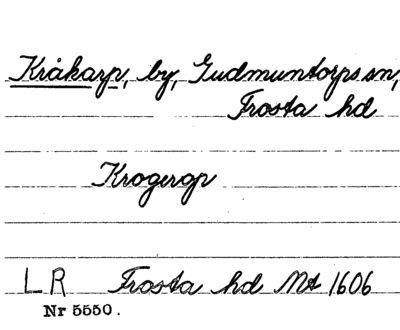 Kråkarp, by, Gudmuntorps sn,
Frosta hd
Krogerop
LR Frosta hd Mt 1606
Nr 5550.